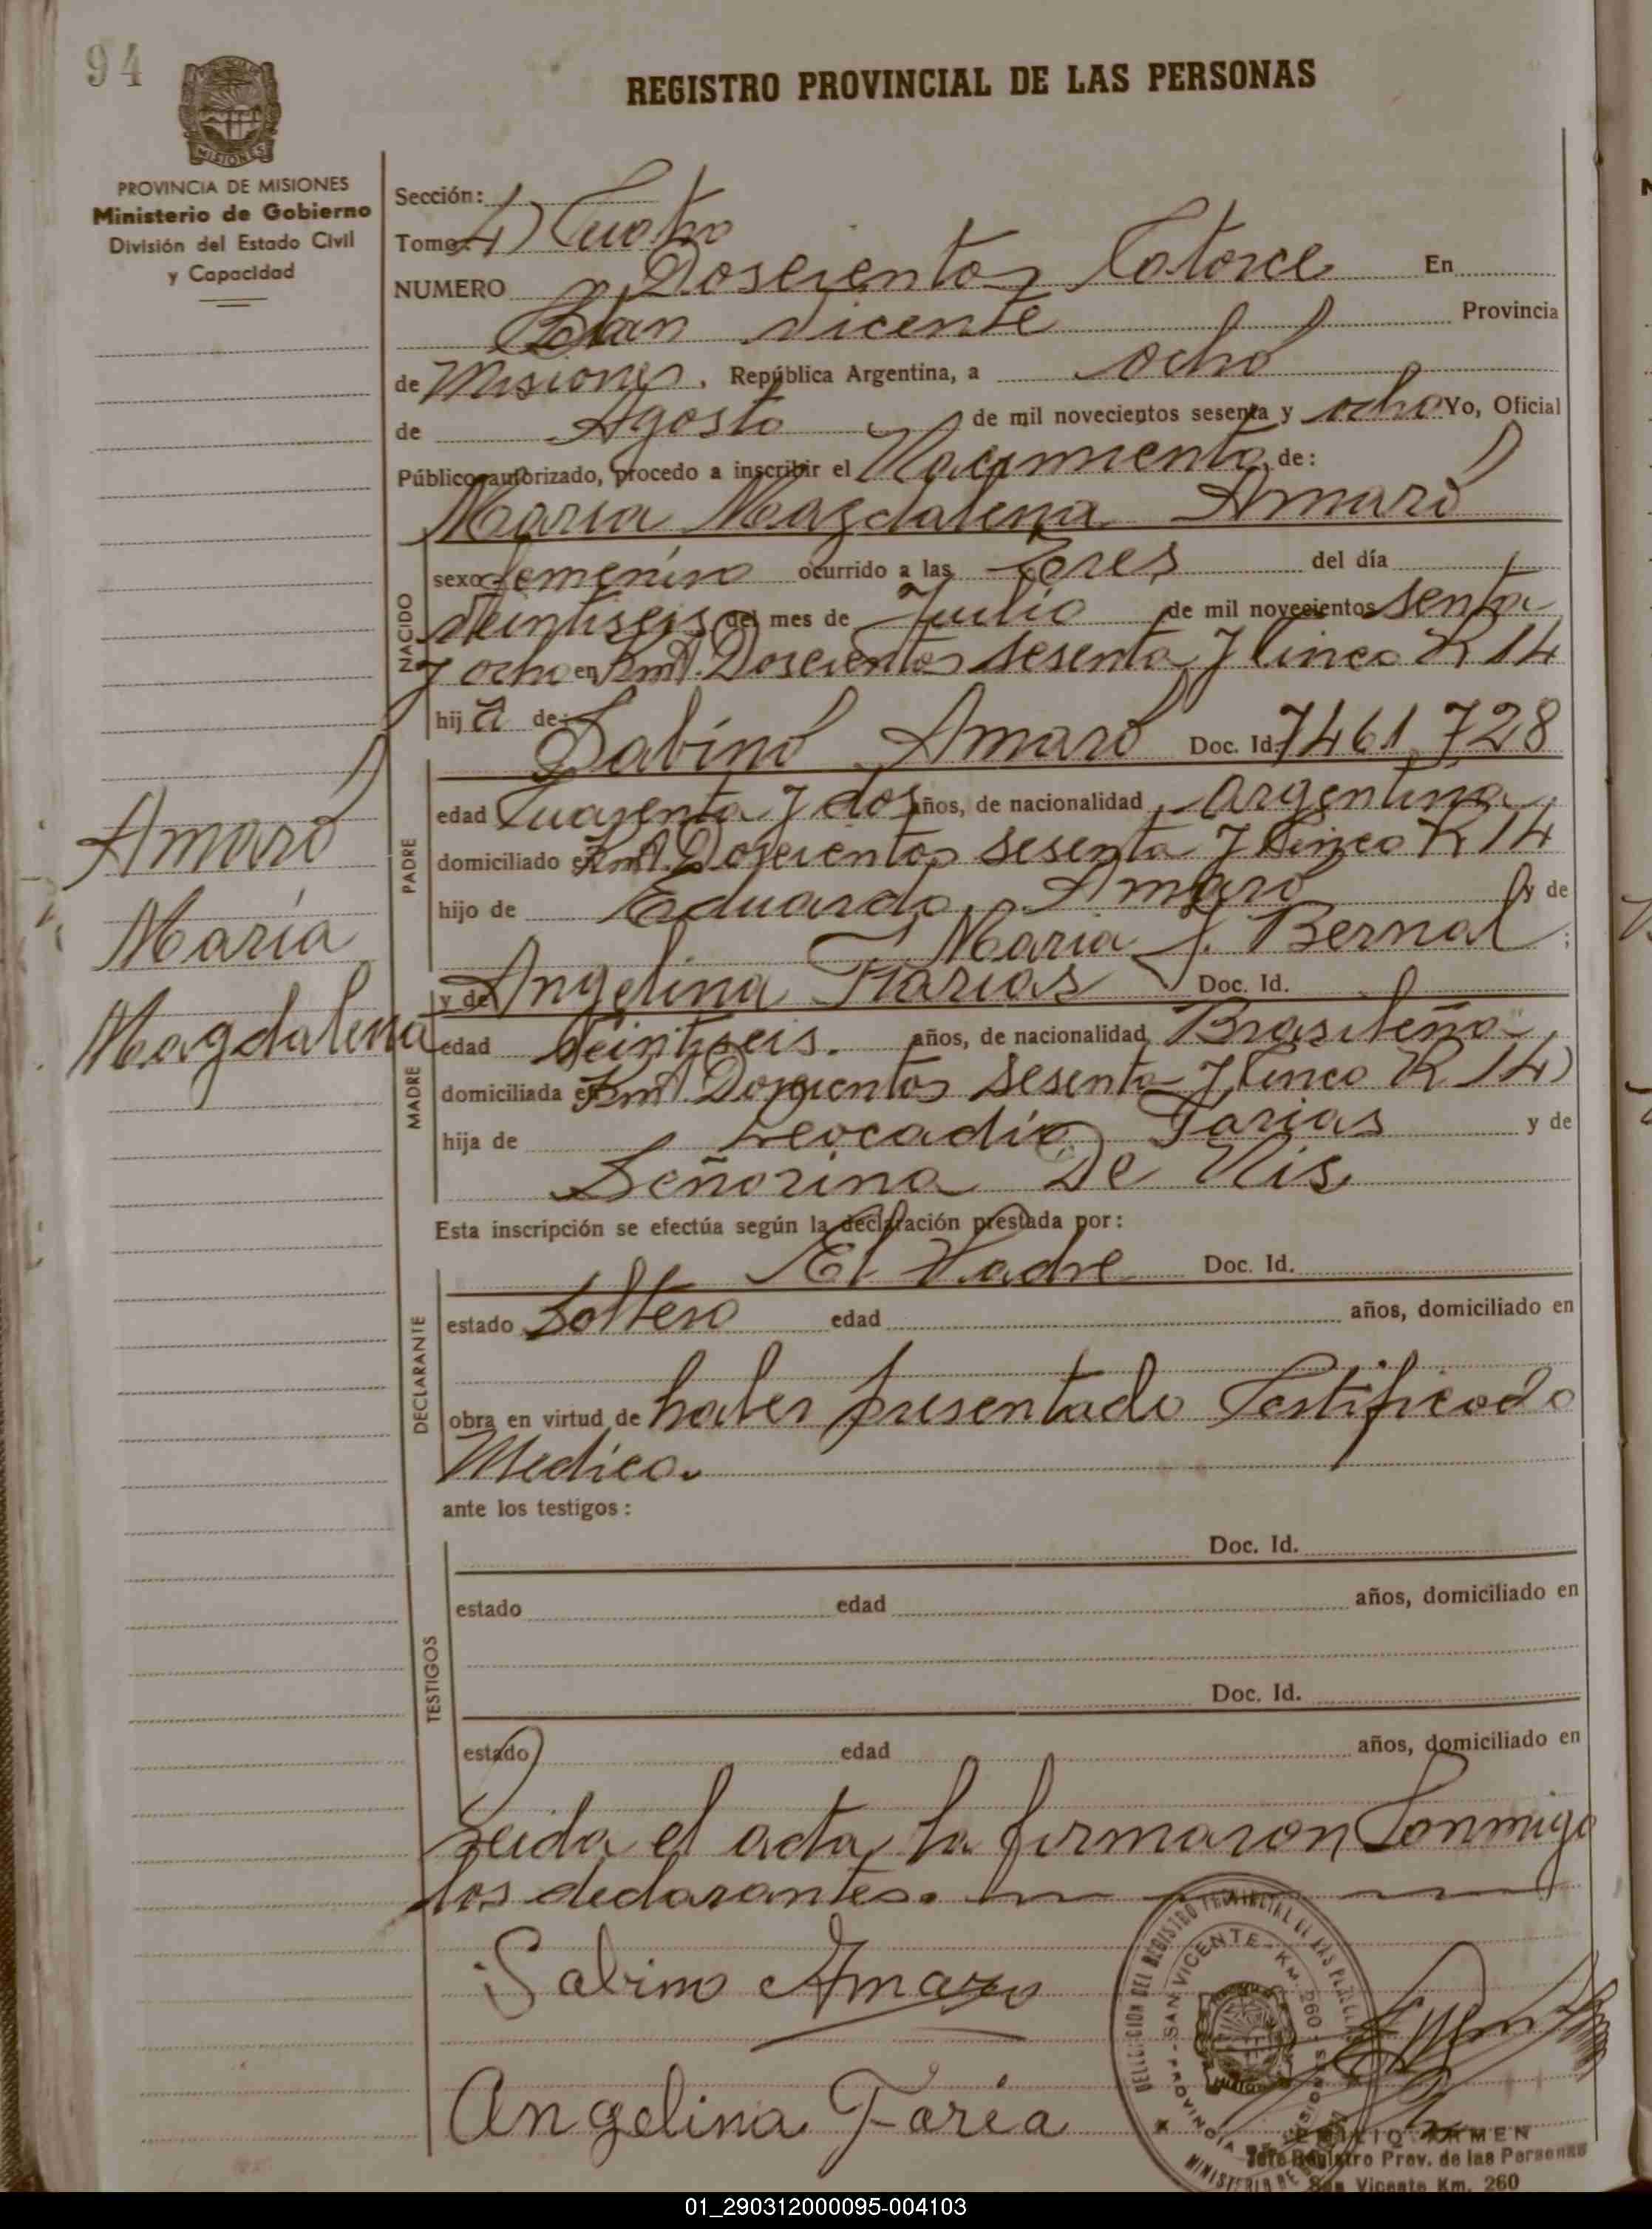 94
REGISTRO PROVINCIAL DE LAS PERSONAS
MISIONES
PROVINCIA DE MISIONES
Ministerio de Gobierno
División del Estado Civil
y Capacidad
Sección:
Tomo: 4) Cuatro
NUMERO Doscientos Catorce En
San Vicente Provincia
de Misiones, República Argentina, a ocho
de Agosto de mil novecientos sesenta y ocho Yo, Oficial
Público autorizado, procedo a inscribir el Nacimiento de:
Maria Magdalena Amaro
NACIDO
sexo femenino ocurrido a las Tres del día
Veintiseis del mes de Julio de mil novecientos senta
y ocho en Kmt. Doscientos sesenta y Cinco R 14
hija de:
Sabino Amaro Doc. Id. 7461,728
PADRE
edad Cuarenta y dos años, de nacionalidad Argentina
domiciliado en Kmt. Doscientos sesenta y Cinco R 14
hijo de Eduardo Amaro y de
Maria J. Bernal ;
y de Angelina Farias Doc. Id.
MADRE
edad Veintiseis. años, de nacionalidad Brasileña
domiciliada en Kmt. Doscientos Sesenta y Cinco R. 14)
hija de Leocadio Farias y de
Señorina De
Esta inscripción se efectúa según la declaración prestada por:
El Padre Doc. Id.
DECLARANTE
estado Soltero edad años, domiciliado en
obra en virtud de haber presentado Certificado
Medico.
ante los testigos:
Doc. Id.
TESTIGOS
estado edad años, domiciliado en
Doc. Id.
estado edad años, domiciliado en
Leida el acta, la firmaron Conmigo
los declarantes.
Sabino Amaro
Angelina Faria
Amaro
María
Magdalena
DELEGACION DEL REGISTRO PROVINCIAL DE LAS PERSONAS
SAN VICENTE - KM. 260
PROVINCIA DE MISIONES
MINISTERIO DE
Jefe Registro Prov. de las Personas
San Vicente Km. 260
01_290312000095-004103